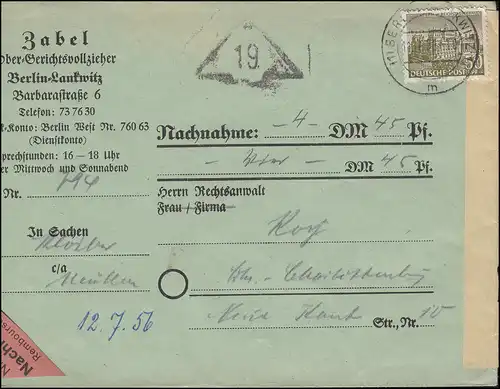 Zabel
Ober-Gerichtsvollzieher
Berlin-Lankwitz
Barbarastraße 6
Telefon: 73 76 30
k-Konto: Berlin West Nr. 760 63
(Dienstkonto)
prechstunden: 16 – 18 Uhr
er Mittwoch und Sonnabend
Nr.
In Sachen
c/a
12.7.56
19
DEUTSCHE POST
m
Nachnahme: -4- DM 45 Pf.
- vier - DM 45 Pf.
Herrn Rechtsanwalt
Frau / Firma
Bln.-Charlottenburg
Neue Kant Str., Nr. 10
Rembours
Nachn